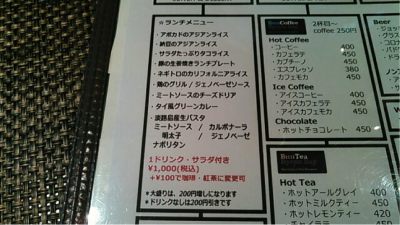 ※ランチメニュー
・アボカドのアジアンライス
・納豆のアジアンライス
・サラダたっぷりタコライス
・豚の生姜焼きランプレート
・ネギトロのカリフォルニアライス
・鶏のグリル / ジェノベーゼソース
・ミートソースのチーズドリア
・タイ風グリーンカレー
・淡路島産生パスタ
ミートソース / カルボナーラ
明太子 / ジェノベーゼ
ナポリタン
1ドリンク・サラダ付き
¥1,000(税込)
+¥100で珈琲・紅茶に変更可
*大盛りは、200円増しになります
*ドリンクなしは200円引きです
Coffee
2杯目〜
coffee 250円
Hot Coffee
・コーヒー 400
・カフェラテ 450
・カプチーノ 450
・エスプレッソ 380
・カフェモカ 450
Ice Coffee
・アイスコーヒー 400
・アイスカフェラテ 450
・アイスカフェモカ 450
Chocolate
・ホットチョコレート 450
Tea
Hot Tea
・ホットアールグレイ 400
・ホットミルクティー 450
・ホットレモンティー 450
・チャイラテ 450
Beer